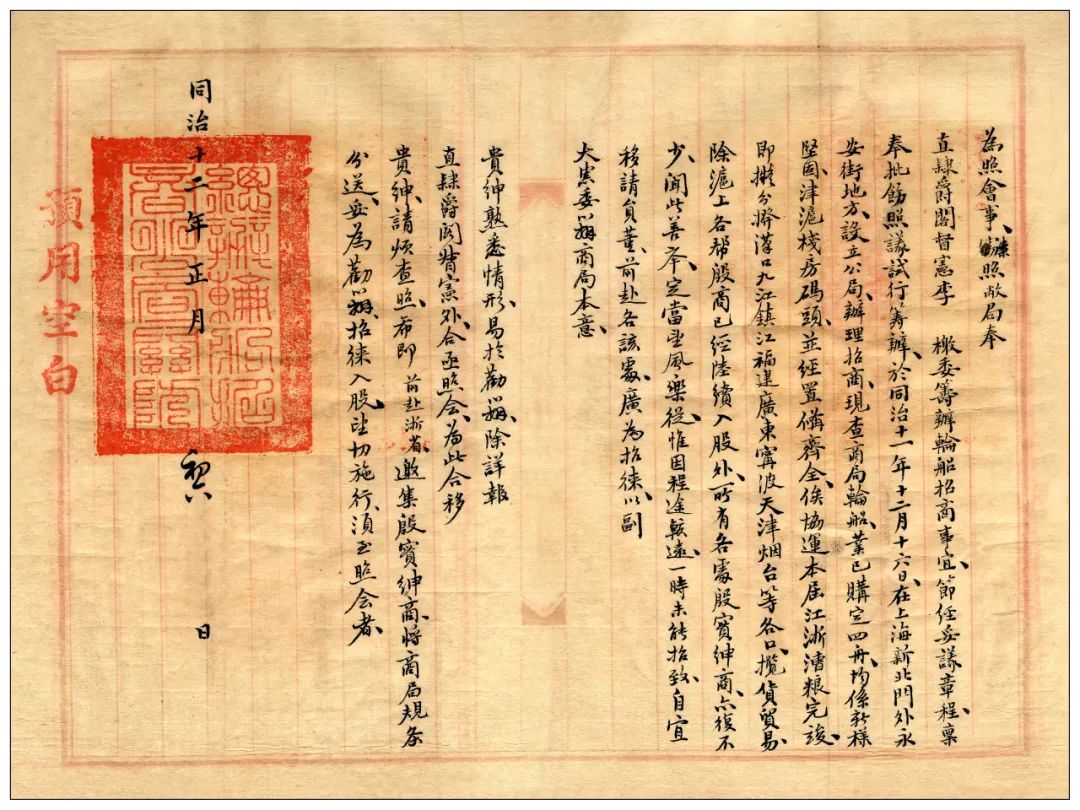 為照會事、案照敝局奉
直隸爵閣督憲李　檄委籌辦輪船招商事宜、節經妥議章程、稟
奉批飭照議試行籌辦、於同治十一年十二月十六日、在上海新北門外永
安街地方、設立公局、辦理招商、現查商局輪船、業已購定四舟、均係新樣
堅固、津滬棧房碼頭、並經置備齊全、俟協運本屆江浙漕粮完竣、
即擬分撥漢口九江鎮江福建廣東甯波天津烟台等各口、攬貨貿易、
除滬上各幫殷商已經陸續入股外、所有各處殷實紳商、亦復不
少、聞此善舉、定當望風樂從、惟因程途較遠、一時未能招致、自宜
移請貟董、前赴各該處、廣為招徠、以副
大憲委辦商局本意、
貴紳熟悉情形、易於勸辦、除詳報
直隸爵閣督憲外、合亟照會、為此合移
貴紳、請煩查照、希即前赴浙省、邀集殷實紳商、將商局規条
分送、妥為勸辦、招徠入股、望切施行、須至照會者、
同治十二年正月　　日
總辦輪船招
商公局關防
預用空白